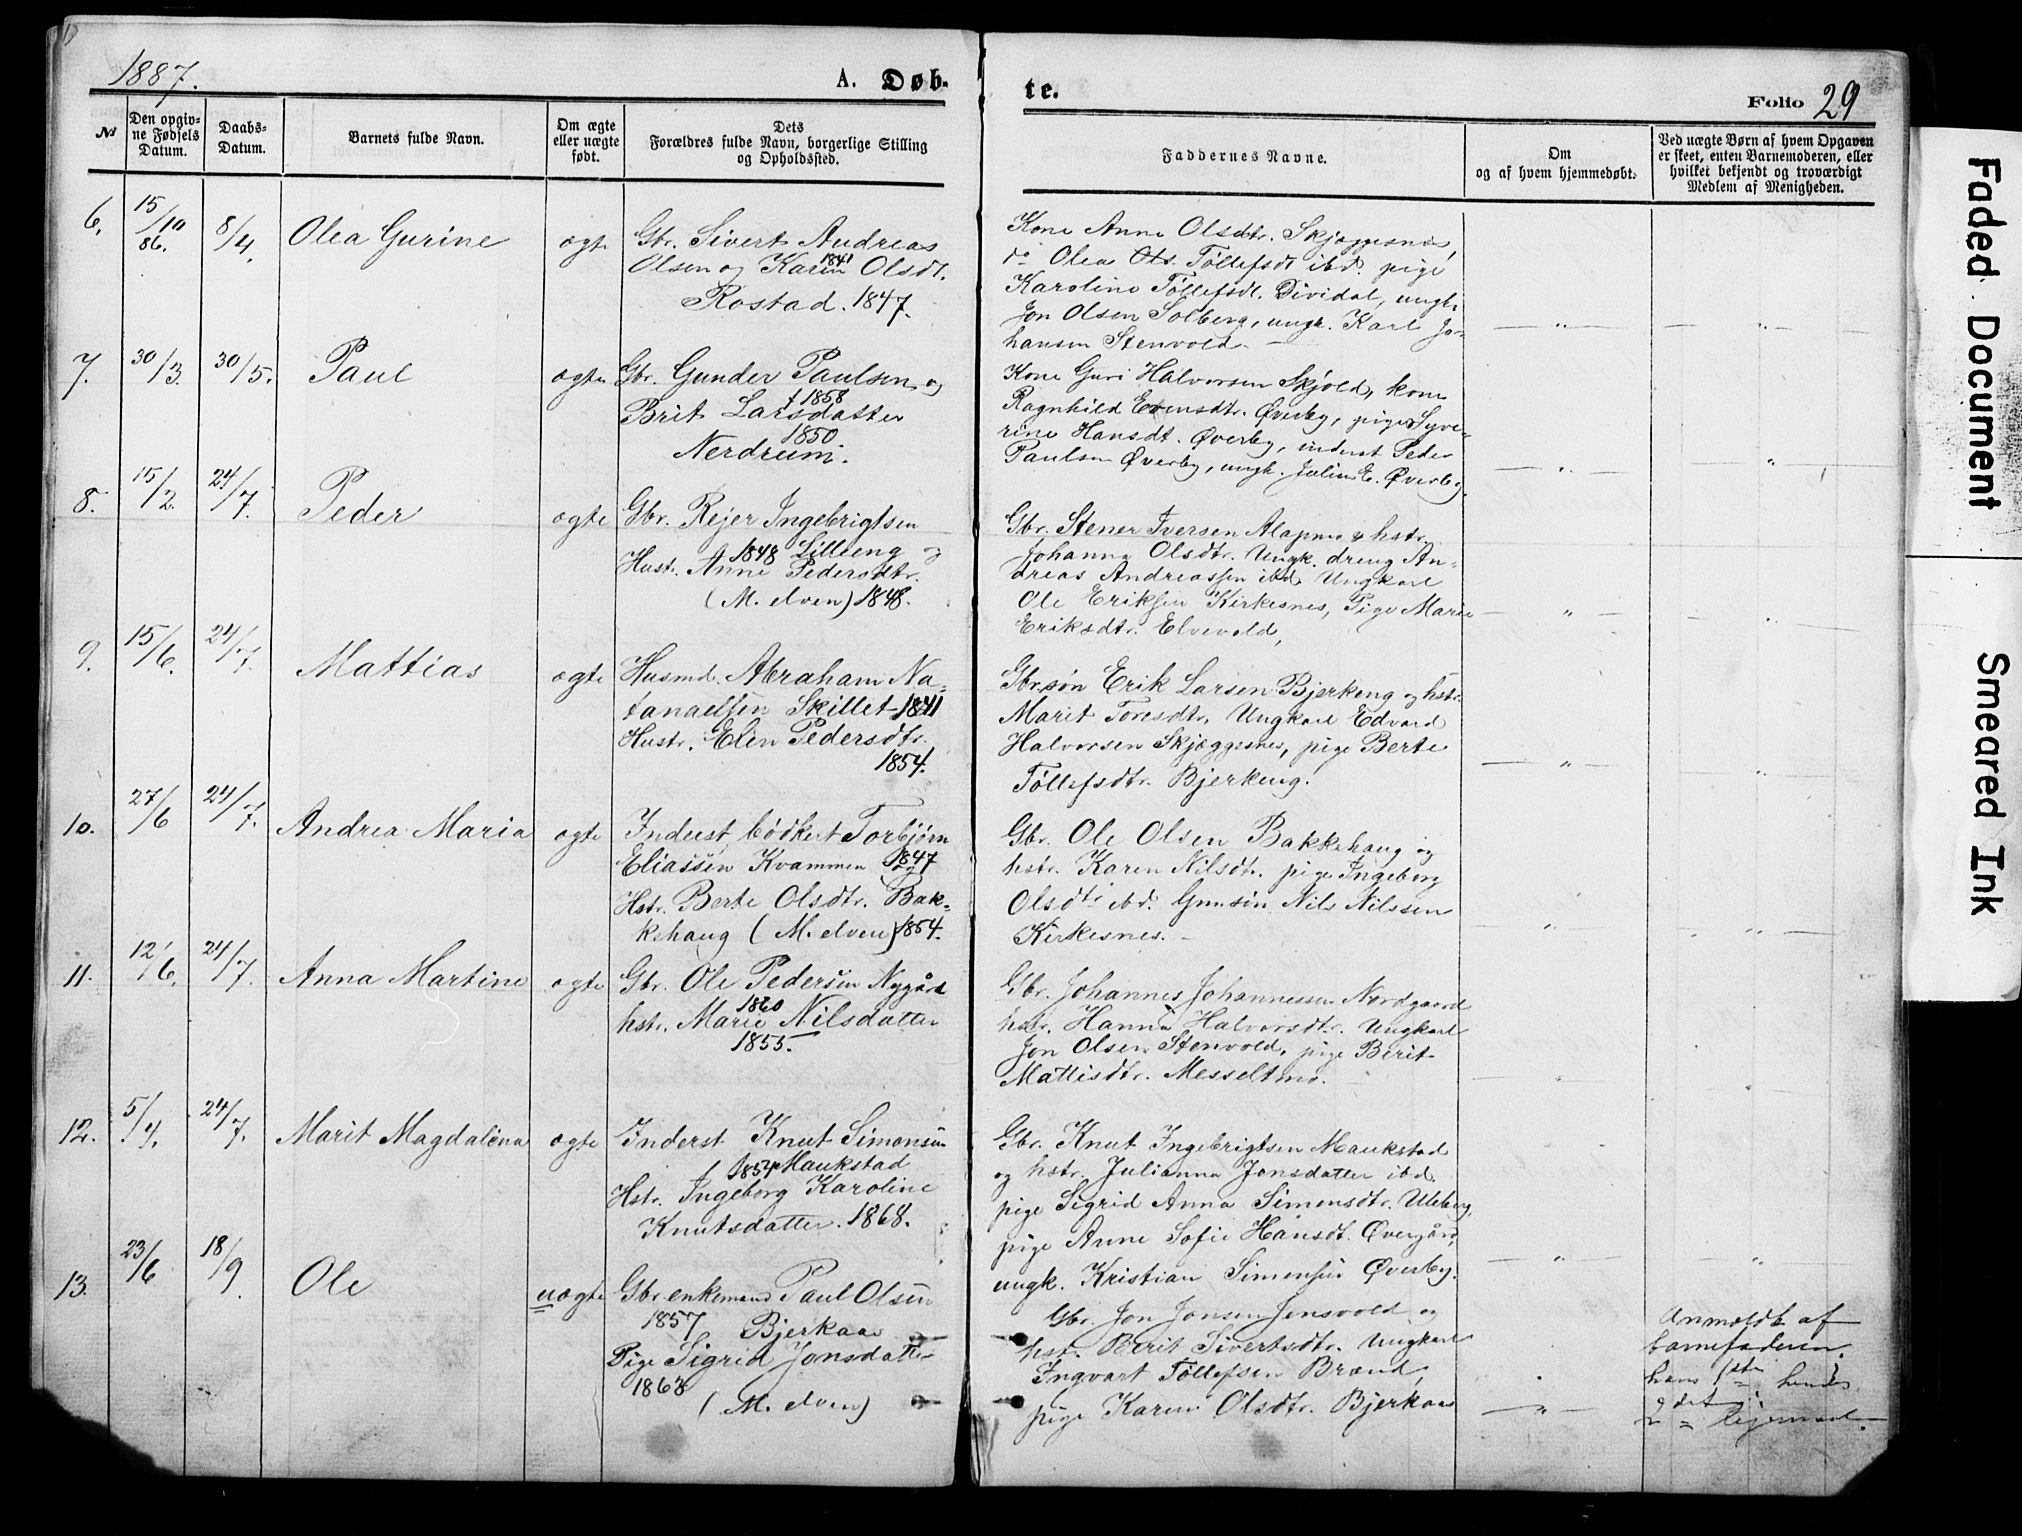 1887.
A. Døb-
te.
Folio 29
№
Den opgiv=
ne Fødsels
Datum.
Daabs=
Datum.
Barnets fulde Navn.
Om ægte
eller uægte
født.
Dets
Forældres fulde Navn, borgerlige Stilling
og Opholdssted.
Faddernes Navne.
Om
og af hvem hjemmedøbt.
Ved uægte Børn af hvem Opgaven
er skeet, enten Barnemoderen, eller
hvilket bekjendt og troværdigt
Medlem af Menigheden.
6.
15/10
86.
8/4.
Olea Gurine
ægte
Gbr. Sivert Andreas
1841
Olsen og Karen Olsdt.
Rostad. 1847.
Kone Anne Olsdtr. Skjæggesnes,
do Olea Ols. Töllefsdt ibd. pige
Karoline Töllefsdt. Dividal, ungk.
Jon Olsen Solberg, ungk. Karl Jo-
hansen Stenvold. —
7.
30/3.
30/5.
Paul
ægte
Gbr. Gunder Paulsen og
1858
Brit Larsdatter
1850
Nerdrum.
Kone Guri Halvorsen Skjold, kone
Ragnhild Evensdtr. Øverby, pige Syve-
rine Hansdt. Øverby, inderst Peder
Paulsen Øverby, ungk. Julius E. Øverby.
8.
15/2.
24/7.
Peder
ægte
Gbr. Rejer Ingebrigtsen
1848 Lilleeng og
Hust. Anne Pedersdtr.
(M. elven) 1848.
Gbr. Stener Iversen Alapmo & hstr.
Johanna Olsdtr. Ungk. dreng An-
dreas Andreassen ibd. Ungkarl
Ole Eriksen Kirkesnes, Pige Marie
Eriksdtr. Elvevold,
9.
15/6.
24/7.
Mattias
ægte
Husmd. Abraham Na-
tanaelsen Skillet 1841
Hustr. Elen Pedersdtr.
1854.
Gbr.søn Erik Larsen Bjerkeng og hstr.
Marit Toresdtr. Ungkarl Edvard
Halvorsen Skjæggesnes, pige Berte
Töllefsdtr. Bjerkeng.
10.
27/6
24/7.
Andrea Maria
ægte
Inderst, bödker Torbjörn
Eliassen Kvammen 1847
Hstr. Berte Olsdtr. Bak-
kehaug (M. elven) 1854.
Gbr. Ole Olsen Bakkehaug og
hstr. Karen Nilsdtr. pige Ingeborg
Olsdtr ibd. Gmsön Nils Nilssen
Kirkesnes. —
11.
12/6.
24/7.
Anna Martine
ægte
Gbr. Ole Pedersen Nygård
1860
hstr. Marie Nilsdatter
1855.
Gbr. Johannes Johannessen Nordgaard
hstr. Hanna Halvorsdtr. Ungkarl
Jon Olsen Stenvold, pige Berit
Mattisdtr. Messeltmo.
12.
5/4.
24/7.
Marit Magdalena
ægte
Inderst Knut Simonsen
1854 Maukstad
Hstr. Ingeborg Karoline
Knutsdatter. 1868.
Gbr. Knut Ingebrigtsen Maukstad
og hstr. Julianna Jonsdatter ibd.
pige Sigrid Anna Simensdtr. Uleberg,
pige Anne Sofie Hansdt. Øvergård,
ungk. Kristian Simensen Øverby.
13.
23/6
18/9.
Ole
uægte
Gbr. enkemand Paul Olsen
1857 Bjerkaas
Pige Sigrid Jonsdatter
1863
(M. elven)
Gbr. Jon Jonsen Jensvold og
hstr. Berit Sivertsdtr. Ungkarl
Ingvart Töllefsen Brænd,
pige Karen Olsdtr. Bjerkaas
Anmeldt af
barnefaderen.
hans 1ste hendes
2det
lejermaal.
Faded Document
Smeared Ink